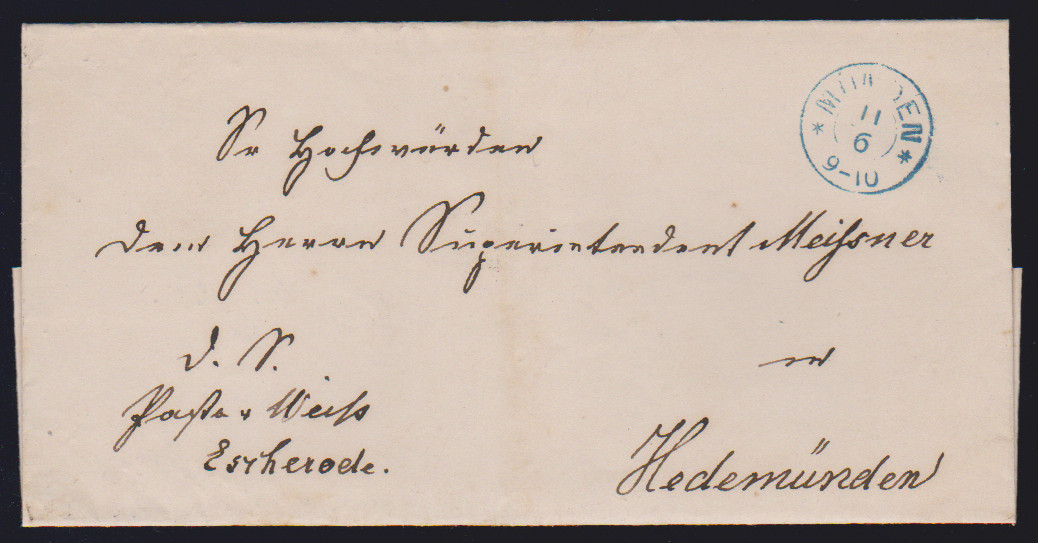 MÜNDEN
11
6
9-10
Sr Hochwürden
dem Herrn Superintendent Meißner
D. S.
in
Pastor Weiß
Escherode.
Hedemünden